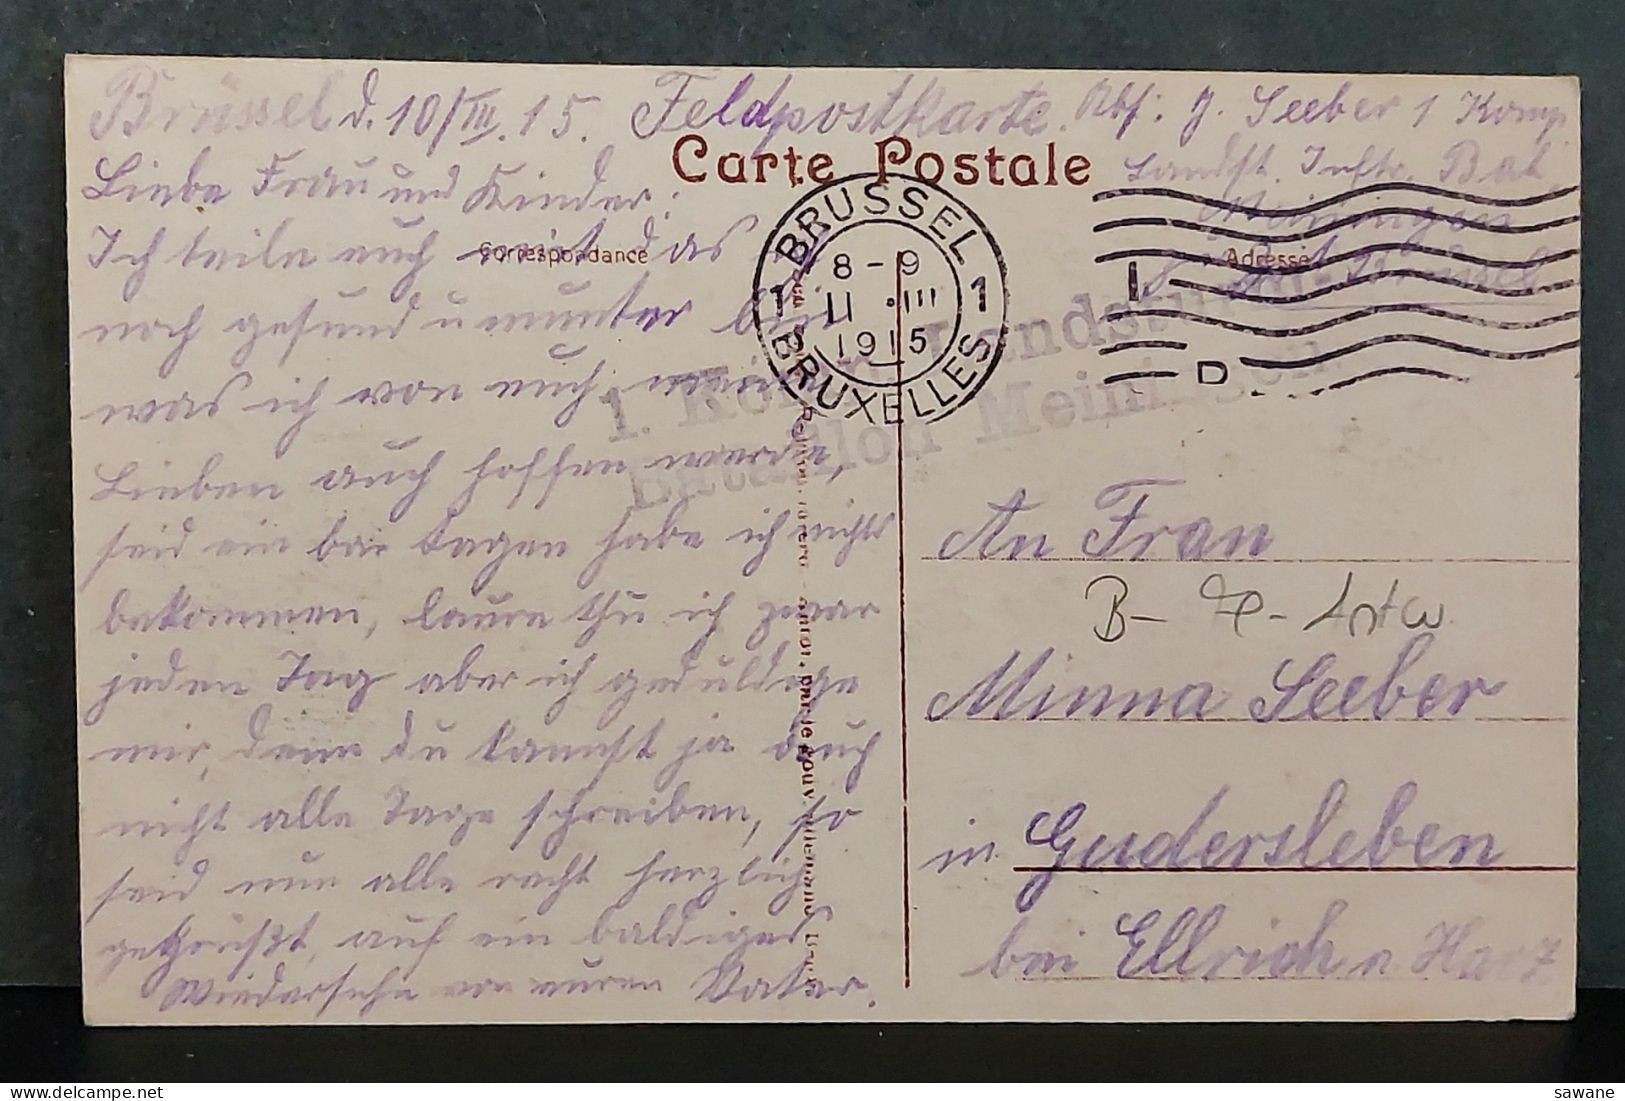 Brüssel d. 10/III. 15. Feldpostkarte.
Abs: J. Seeber 1 Komp
Landst. Inftr. Bat.
Meiningen
Brüssel
Carte Postale
Correspondance
Adresse
BRUSSEL
8 - 9
1 11 .III 1
1915
BRUXELLES
1. Komp. Landsturm-
Bataillon Meiningen.
Liebe Frau und Kinder!
Ich teile euch mit das
noch gesund u munter bin
was ich von euch meine
Lieben auch hoffen werde,
seid ein bar tagen habe ich nichts
bekommen, laure thu ich zwar
jeden Tag aber ich geduldege
mir, denn du kannst ja auch
nicht alle Tage schreiben, so
seid nun alle recht herzlich
gegrüßt, auf ein baldiges
Wiedersehn von euren Vater.
An Frau
B- Antw
Minna Seeber
in Gudersleben
bei Ellrich a Harz
sawane